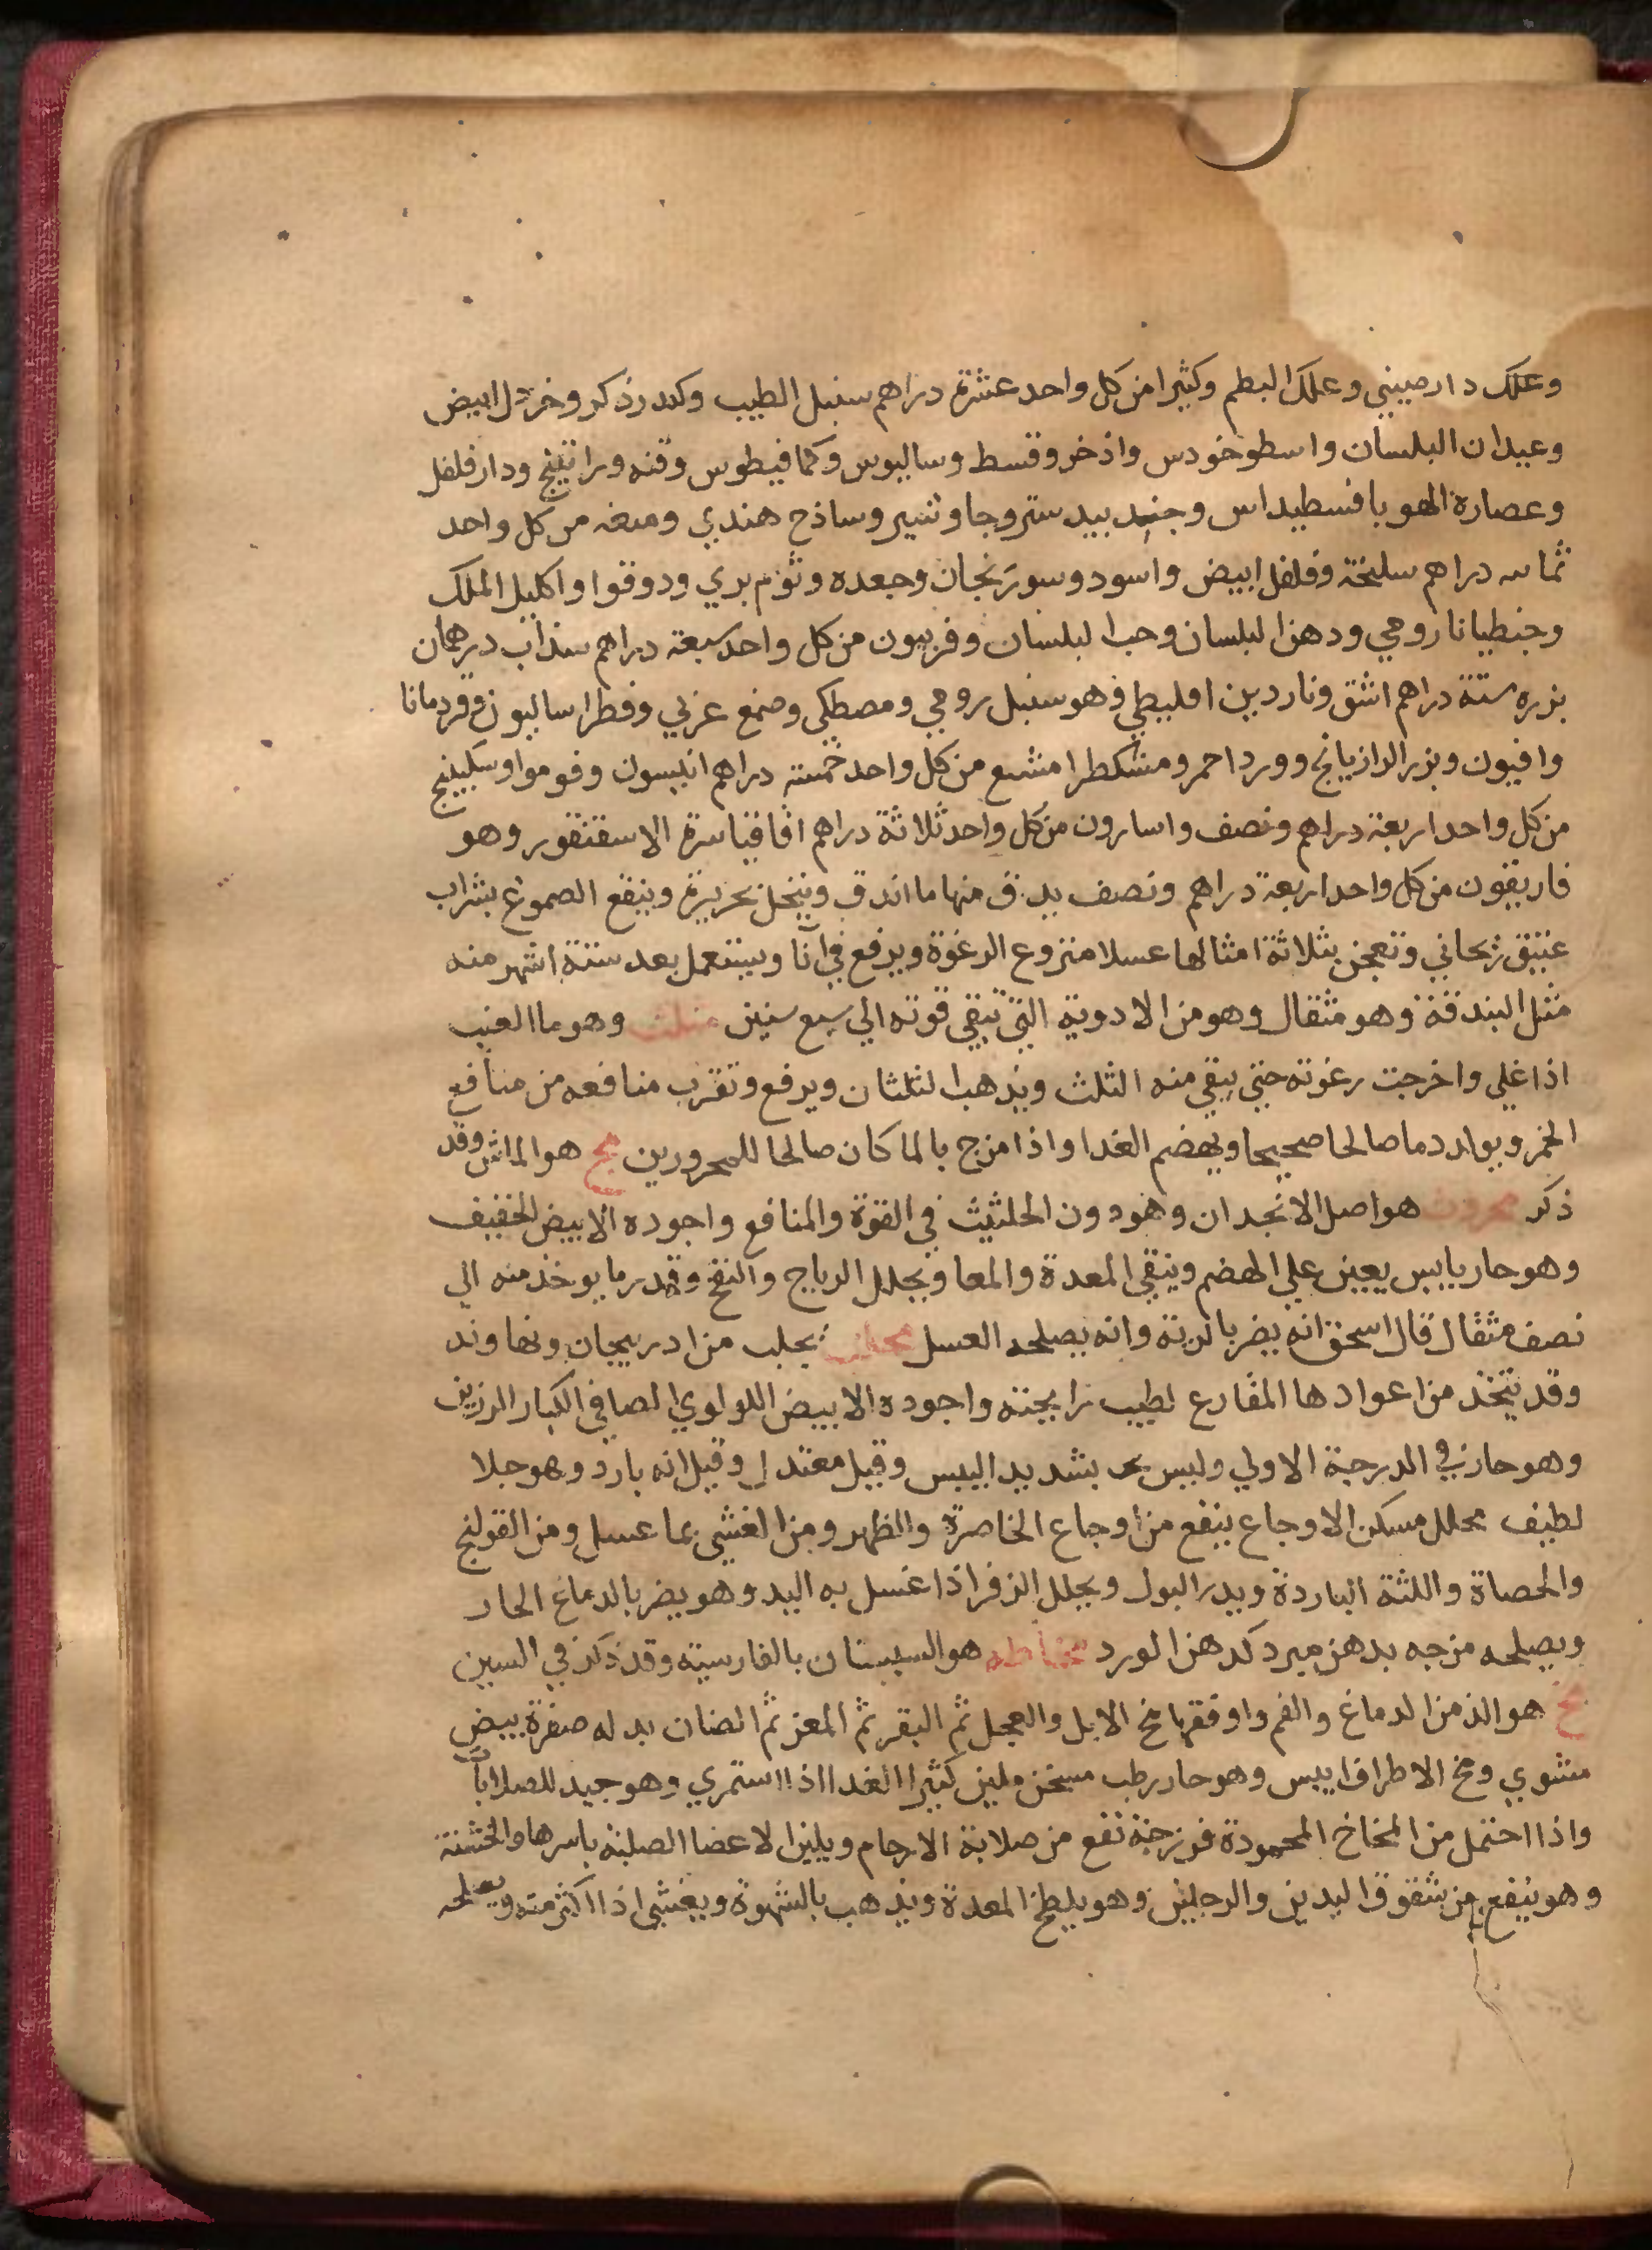 وعلك دارصيني وعلك البطم وكثيرا من كل واحد عشرة دراهم سنبل الطيب وكندر ذكر وخردل ابيض
وعيدان البلسان واسطوخودس واذخر وقسط وساليوس وكمافيطوس وقنه وراتينج ودارفلفل
وعصارة الهوبا فسطيداس وجندبيدستر وجاوشير وساذج هندي وميعه من كل واحد
ثمانيه دراهم سليخة وفلفل ابيض واسود وسورنجان وجعده وثوم بري ودوقوا واكليل الملك
وجنطيانا رومي ودهن البلسان وحب البلسان وفربيون من كل واحد سبعة دراهم سذاب درهمان
بزره ستة دراهم اشق وناردين اقليطي وهو سنبل رومي ومصطكى وصمغ عربي وفطراساليون وقردمانا
وافيون وبزر الرازيانج وورد احمر ومشكطرامشيع من كل واحد خمسة دراهم انيسون وفوموا وسكبينج
من كل واحد اربعة دراهم ونصف واسارون من كل واحد ثلاثة دراهم اقاقيا سرة الاسقنقور وهو
فاريقون من كل واحد اربعة دراهم ونصف يدق منها ما اندق وينخل بحريرة وينقع الصموغ بشراب
عتيق ريحاني وتعجن بثلاثة امثالها عسلا منزوع الرغوة ويرفع في انآ ويستعمل بعد ستة اشهر منه
مثل البندقة وهو مثقال وهو من الادوية التي تبقي قوته الي سبع سنين مثلث وهو ما العنب
اذا غلي واخرجت رغوته حتي يبقي منه الثلث ويذهب الثلثان ويرفع وتقرب منافعه من منافع
الخمر ويولد دما صالحا صحيحا ويهضم الغدا واذا مزج بالما كان صالحا للمحرورين مج هو الماش وقد
ذكر محروت هو اصل الانجدان وهو دون الحلتيث في القوة والمنافع واجوده الابيض الخفيف
وهو حار يابس يعين علي الهضم وينقي المعدة والمعا ويحلل الرياح والنفخ وقدر ما يوخذ منه الي
نصف مثقال قال اسحق انه يضر بالرية وانه يصلحه العسل محلب يجلب من ادربيجان ونهاوند
وقد يتخذ من اعوادها المقارع لطيب رايحته واجوده الابيض اللولوي الصافي الكبار الرزين
وهو حار في الدرجة الاولي وليس بشديد اليبس وقيل معتدل وقيل انه بارد وهو جلا
لطيف محلل مسكن الاوجاع ينفع من اوجاع الخاصرة والظهر ومن الغشي بما عسل ومن القولنج
والحصاة واللثة الباردة ويدر البول ويحلل الزفر اذا غسل به اليد وهو يضر بالدماغ الحار
ويصلحه مزجه بدهن مبرد كدهن الورد مخاطه هو السبستان بالفارسية وقد ذكر في السين
مخ هو الذ من الدماغ والفم واوفقها مخ الابل والعجل ثم البقر ثم المعز ثم الضان بدله صفرة بيض
مشوي ومخ الاطراف ايبس وهو حار رطب مسخن ملين كثير الغدا اذا استمري وهو جيد للصلابات
واذا احتمل من المخاخ المحمودة فرزجة نفع من صلابة الارحام ويلين الاعضا الصلبة باسرها والخشنة
وهو ينفع من شقوق اليدين والرجلين وهو يلطخ المعدة ويذهب بالشهوة ويغشي اذا اكثر منه ويصلحه